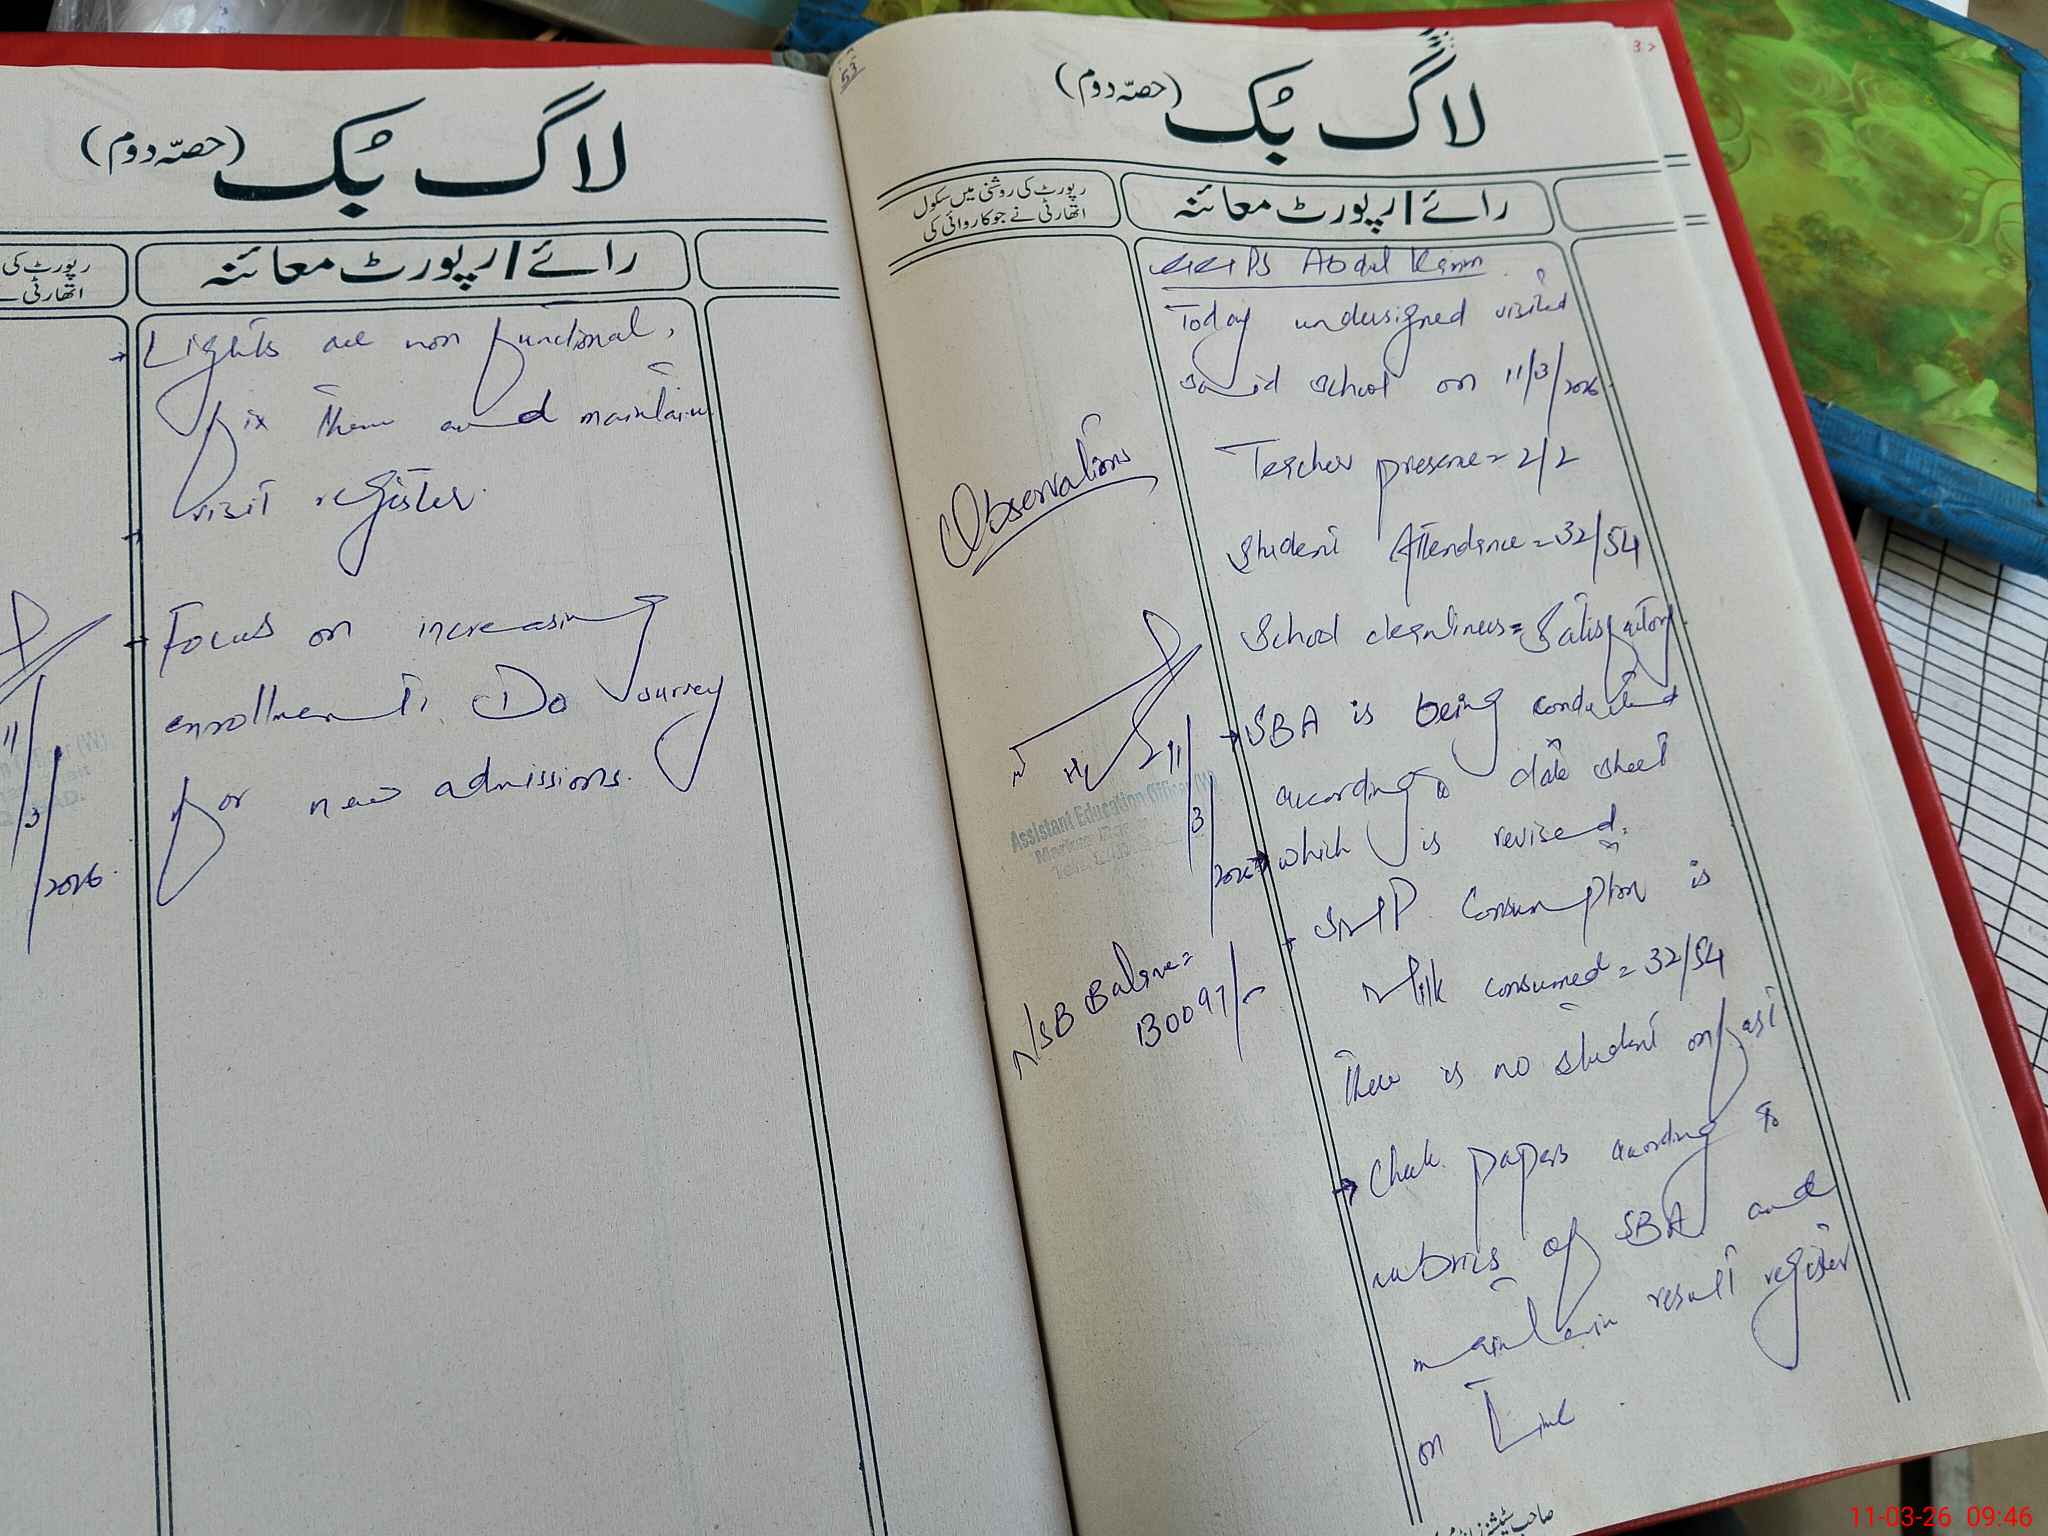 لاگ بُک (حصّہ دوم)
رائے / رپورٹ معائنہ
رپورٹ کی
اتھارٹی
Lights are non functional,
fix them and maintain
visit register.
Focus on increasing
enrollment. Do survey
for new admissions.
11/3/2026
53
لاگ بُک (حصّہ دوم)
رپورٹ کی روشنی میں سکول
اتھارٹی نے جو کاروائی کی
رائے / رپورٹ معائنہ
PS Abdul Karim
Today undersigned visited
said school on 11/3/2026.
Teacher presence = 2/2
Observations
Student Attendance = 32/54
School cleanliness = Satisfactory
SBA is being conducted
according to date sheet
which is revised.
11/3/2026
Assistant Education Officer (W)
SMP Consumption is
Milk consumed = 32/54
NSB Balance =
130097/-
There is no student on fast
Check papers according to
rubrics of SBA and
maintain result register
on Time.
11-03-26 09:46